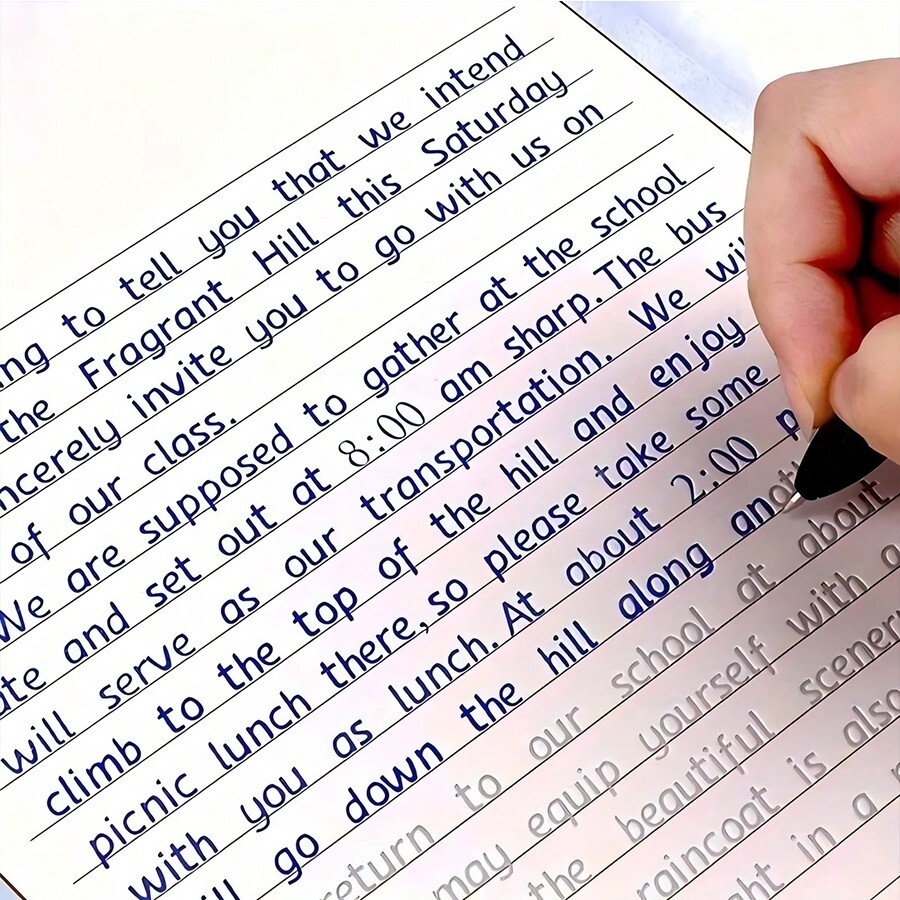 to tell you that we intend
the Fragrant Hill this Saturday
invite you to go with us on
of our class.
We are supposed to gather at the school
and set out at 8:00 am sharp. The bus
will serve as our transportation. We
climb to the top of the hill and enjoy
picnic lunch there, so please take some
with you as lunch. At about 2:00 p
go down the hill along another
return to our school at about
may equip yourself with a
the beautiful scenery
raincoat is also
in a